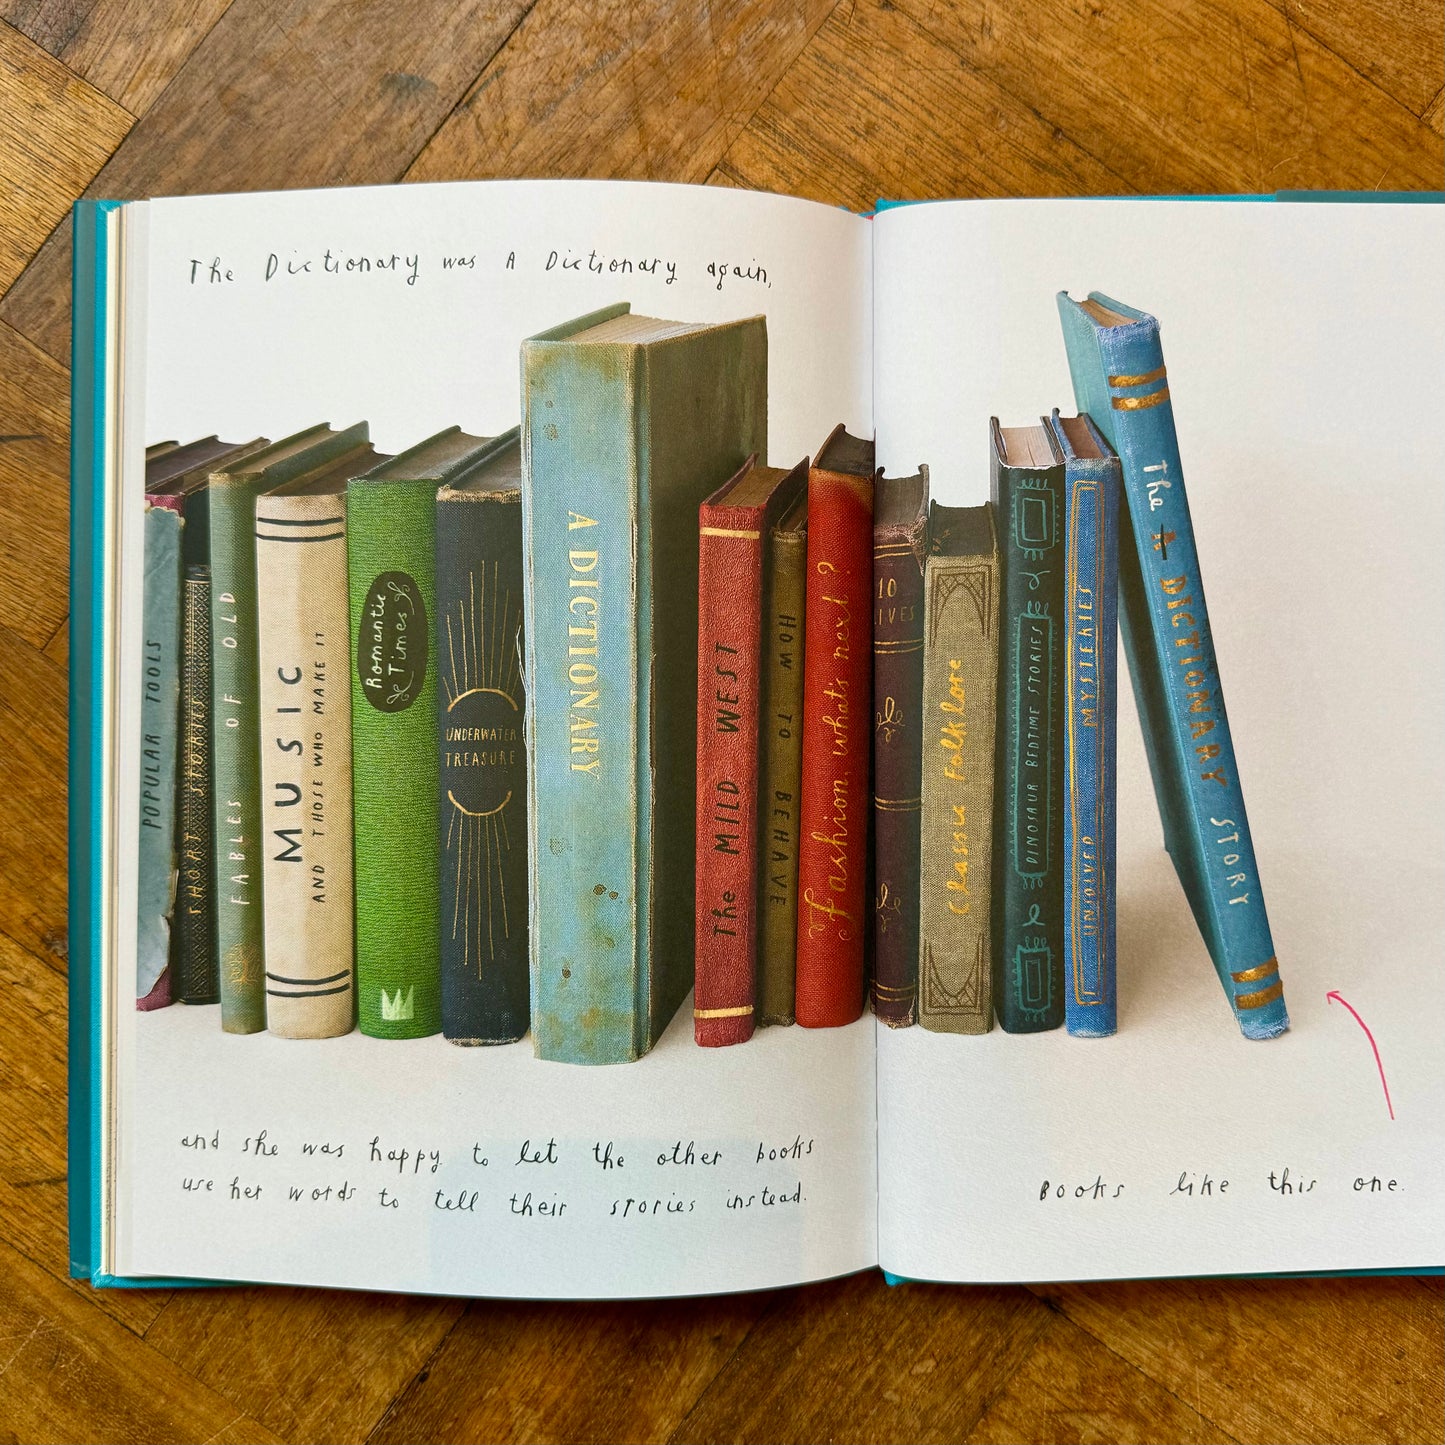 The Dictionary was A Dictionary again,
POPULAR TOOLS
SHORT STORIES
FABLES OF OLD
MUSIC
AND THOSE WHO MAKE IT
Romantic
Times
UNDERWATER
TREASURE
A DICTIONARY
The MILD WEST
HOW TO BEHAVE
Fashion, what's next?
10
LIVES
Classic Folklore
DINOSAUR BEDTIME STORIES
UNSOLVED MYSTERIES
The A DICTIONARY STORY
and she was happy to let the other books
use her words to tell their stories instead.
Books like this one.